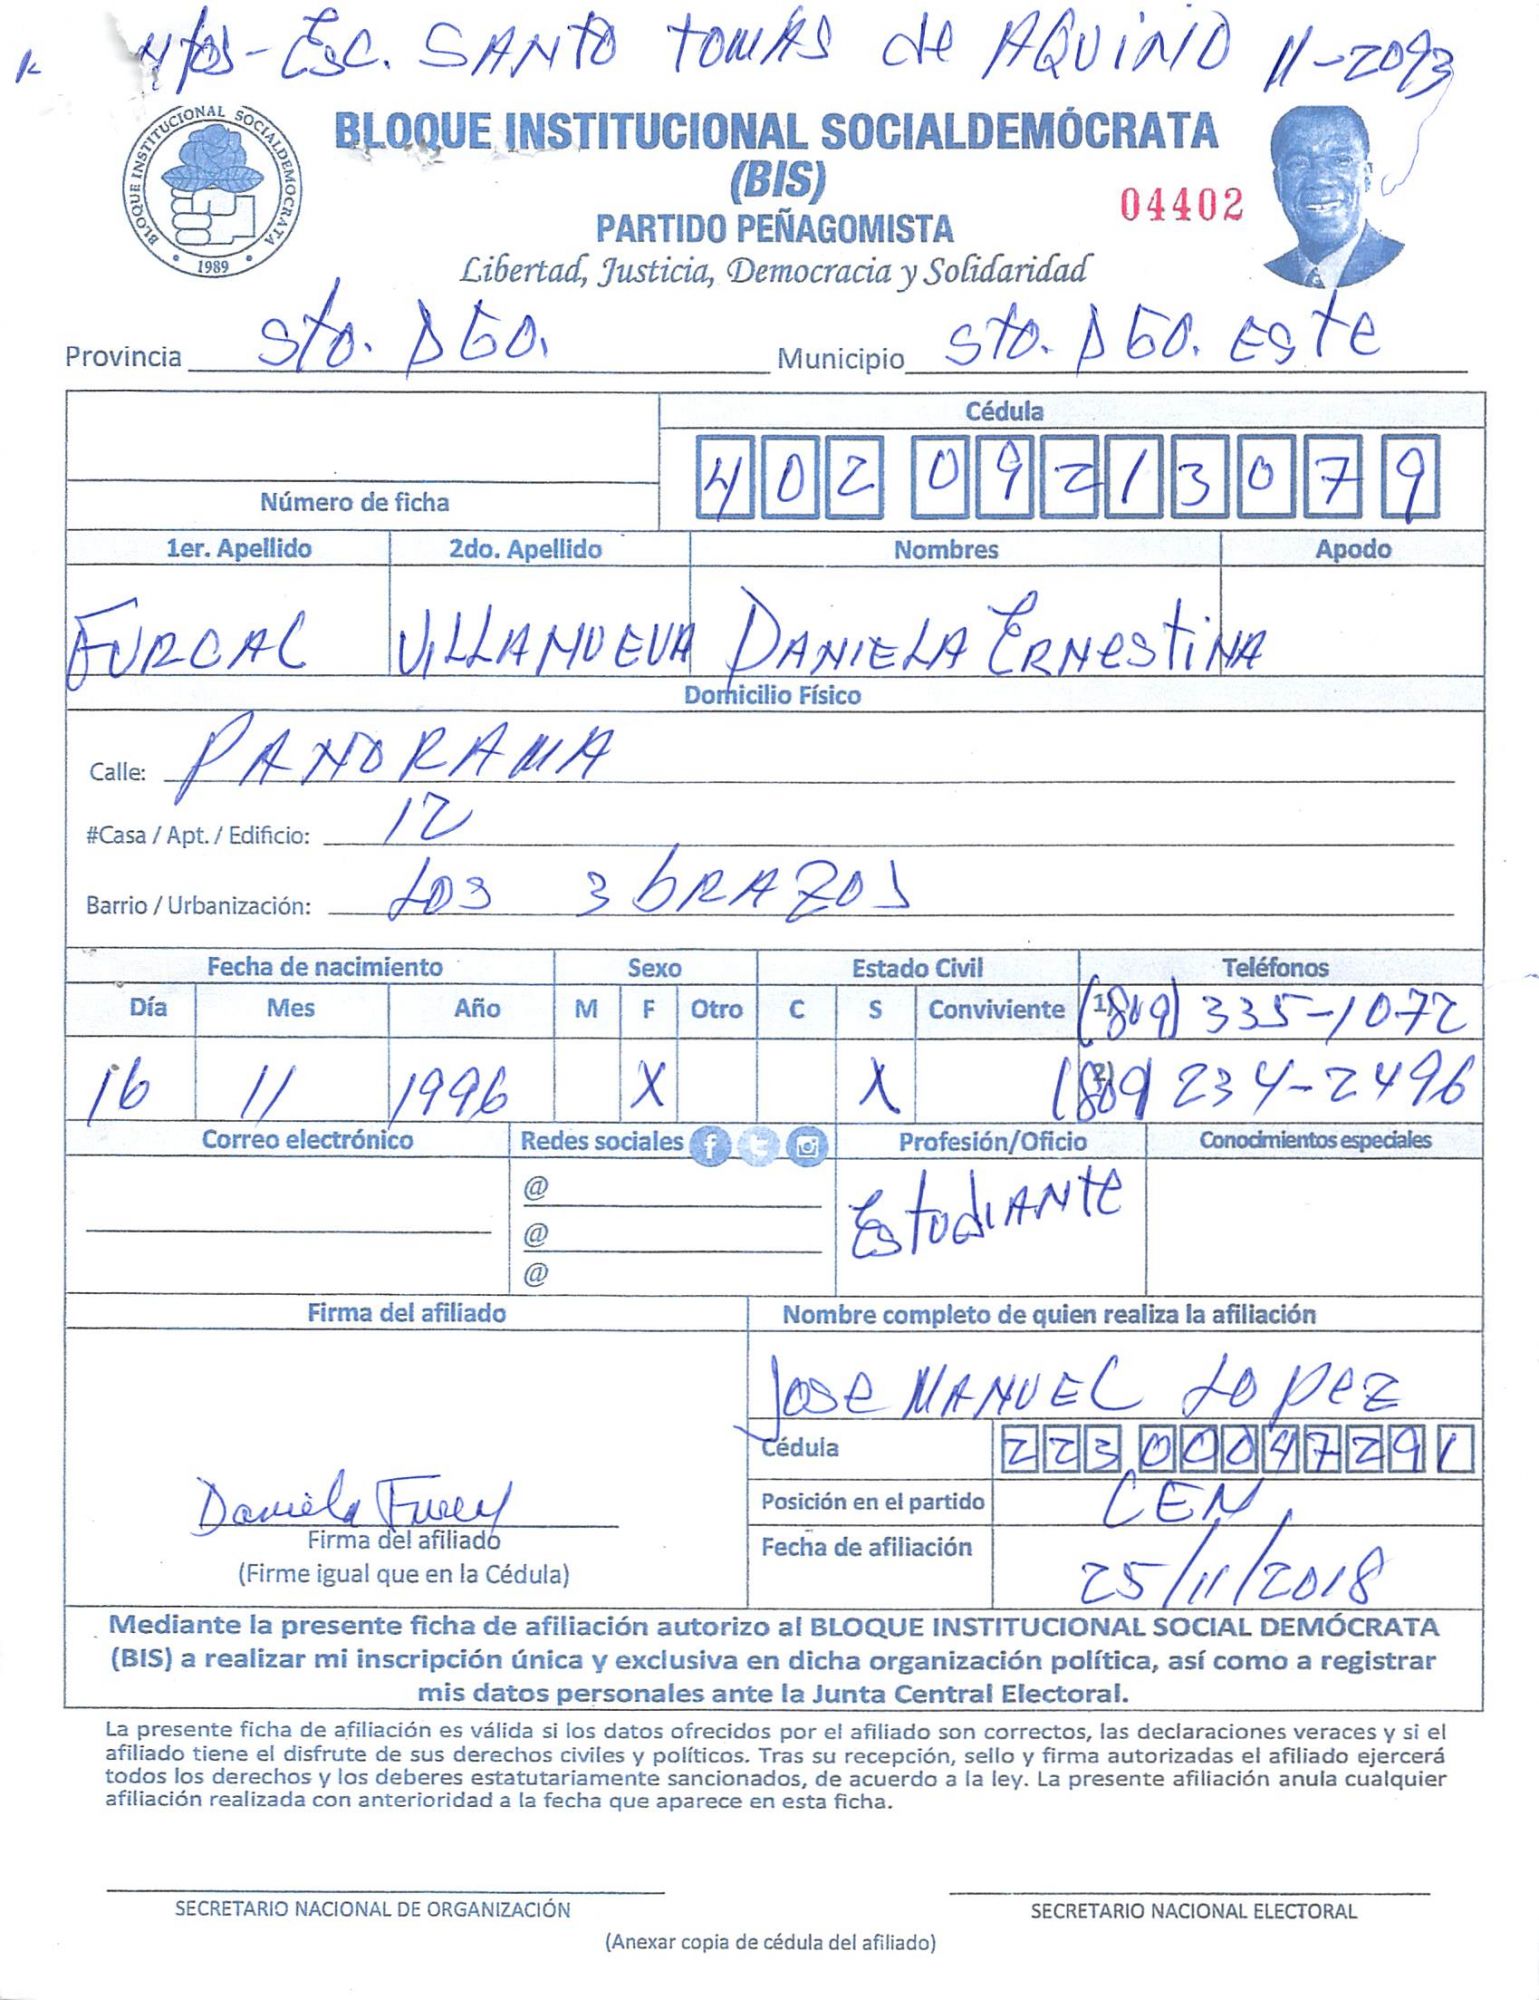 Esc. SANTO TOMAS de AQUINO 11-2093
BLOQUE INSTITUCIONAL SOCIALDEMOCRATA
1989
BLOQUE INSTITUCIONAL SOCIALDEMÓCRATA
(BIS)
PARTIDO PEÑAGOMISTA
04402
Libertad, Justicia, Democracia y Solidaridad
Provincia Sto. Dgo. Municipio Sto. Dgo. Este
Cédula
402 0921307 9
Número de ficha
1er. Apellido 2do. Apellido Nombres Apodo
FURCAL VILLANUEVA DANIELA ERNESTINA
Domicilio Físico
Calle: PANORAMA
#Casa / Apt. / Edificio: 12
Barrio / Urbanización: LOS 3 BRAZOS
Fecha de nacimiento Sexo Estado Civil Teléfonos
Día Mes Año M F Otro C S Conviviente 1) (809) 335-1072
16 11 1996 X X 2) (809) 234-2496
Correo electrónico Redes sociales Profesión/Oficio Conocimientos especiales
@ Estudiante
@
@
Firma del afiliado Nombre completo de quien realiza la afiliación
Jose MANUEL Lopez
Cédula 223 0004729 1
Daniela
Posición en el partido CEN
Firma del afiliado
Fecha de afiliación 25/11/2018
(Firme igual que en la Cédula)
Mediante la presente ficha de afiliación autorizo al BLOQUE INSTITUCIONAL SOCIAL DEMÓCRATA
(BIS) a realizar mi inscripción única y exclusiva en dicha organización política, así como a registrar
mis datos personales ante la Junta Central Electoral.
La presente ficha de afiliación es válida si los datos ofrecidos por el afiliado son correctos, las declaraciones veraces y si el
afiliado tiene el disfrute de sus derechos civiles y políticos. Tras su recepción, sello y firma autorizadas el afiliado ejercerá
todos los derechos y los deberes estatutariamente sancionados, de acuerdo a la ley. La presente afiliación anula cualquier
afiliación realizada con anterioridad a la fecha que aparece en esta ficha.
SECRETARIO NACIONAL DE ORGANIZACIÓN SECRETARIO NACIONAL ELECTORAL
(Anexar copia de cédula del afiliado)